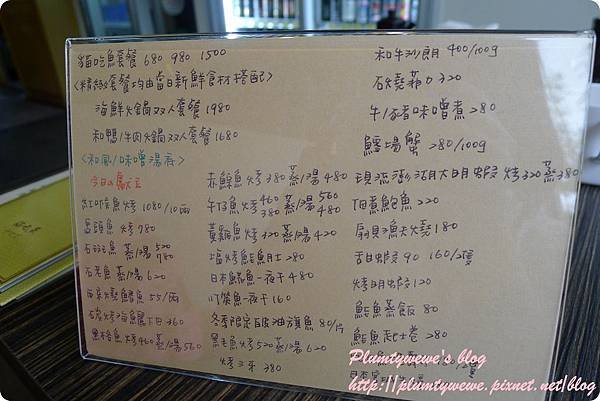 貓吃魚套餐 680 980 1500
<精緻套餐均由當日新鮮食材搭配>
海鮮火鍋双人套餐 1980
和鴨/牛肉火鍋双人套餐 1680
<和風/味噌湯底>
今日a魚
紅 魚 烤 1080/10兩
馬頭魚 烤 780
石 魚 蒸/湯 520 780
石老魚 蒸/湯 620
西京燒鱈魚 55/兩
360
黑 魚 烤460 蒸/湯 560
赤鯮魚 烤 380 蒸/湯 480
午仔魚 烤 460 380 蒸/湯 560 480
黃雞魚 烤 320 蒸/湯 420
塩烤鮭魚肚 280
日本鯖魚一夜干 480
竹筴魚一夜干 160
冬季限定 油旗魚 80/片
黑毛魚 烤520 蒸/湯 620
烤三牙 380
和牛沙朗 400/100g
石燒 320
牛/豬味噌煮 280
鱈場蟹 280/100g
現流澎湖大明蝦 烤320 蒸380
佃煮鮑魚 220
扇貝 燒 180
甜蝦 90 160/2隻
烤明蝦 120
鮭魚蒸飯 80
鮭魚起士卷 280
Plumtywewe's blog
http://plumtywewe.pixnet.net/blog